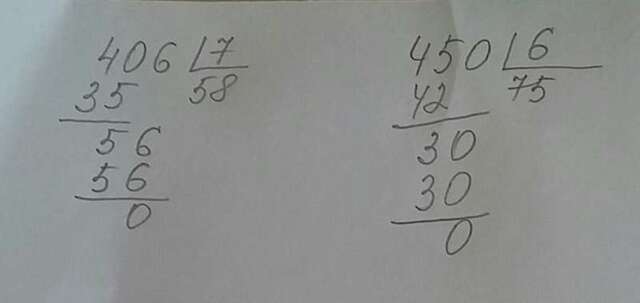 406 7
35 58
56
56
0
450 6
42 75
30
30
0